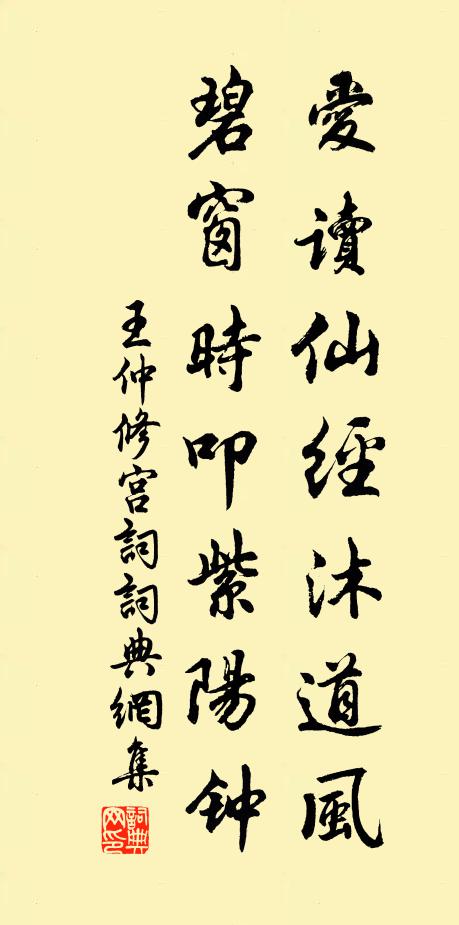 愛讀仙經沐道風
碧窗時叩紫陽钟
王仲修宫詞詞典網集
詞典
网印